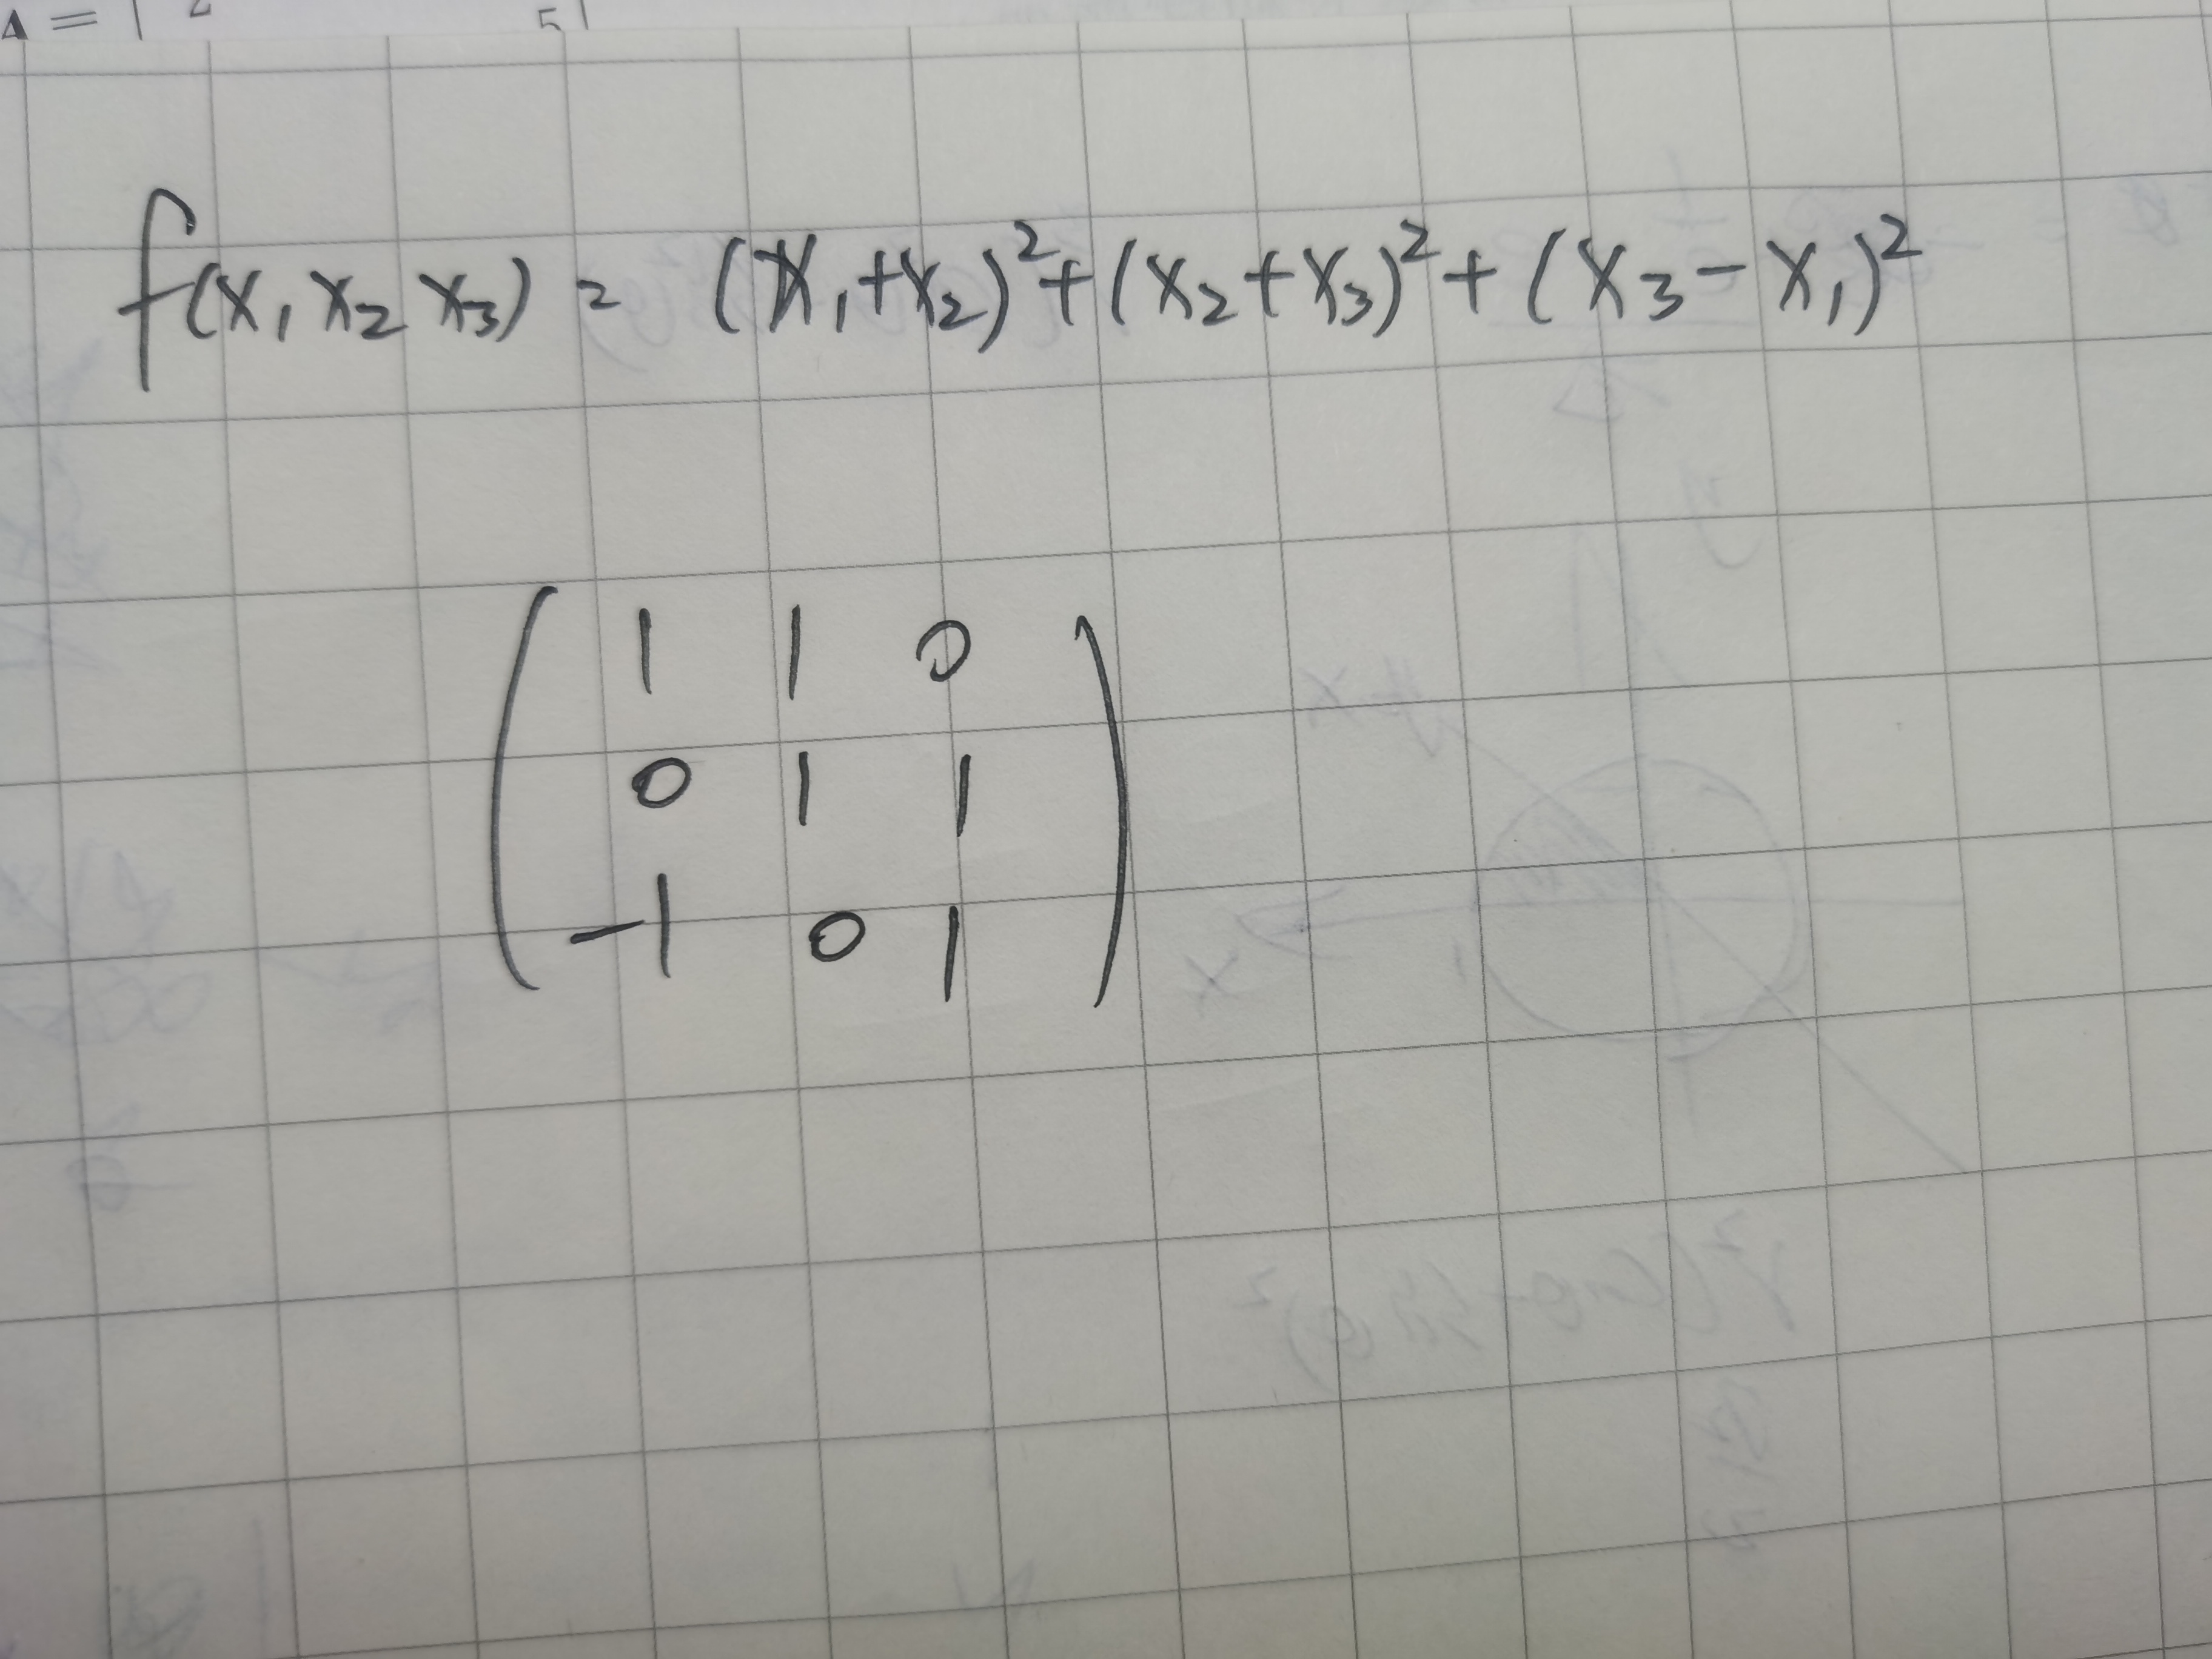 A =
f(x₁ x₂ x₃) = (x₁+x₂)²+(x₂+x₃)²+(x₃-x₁)²
1 1 0
0 1 1
-1 0 1